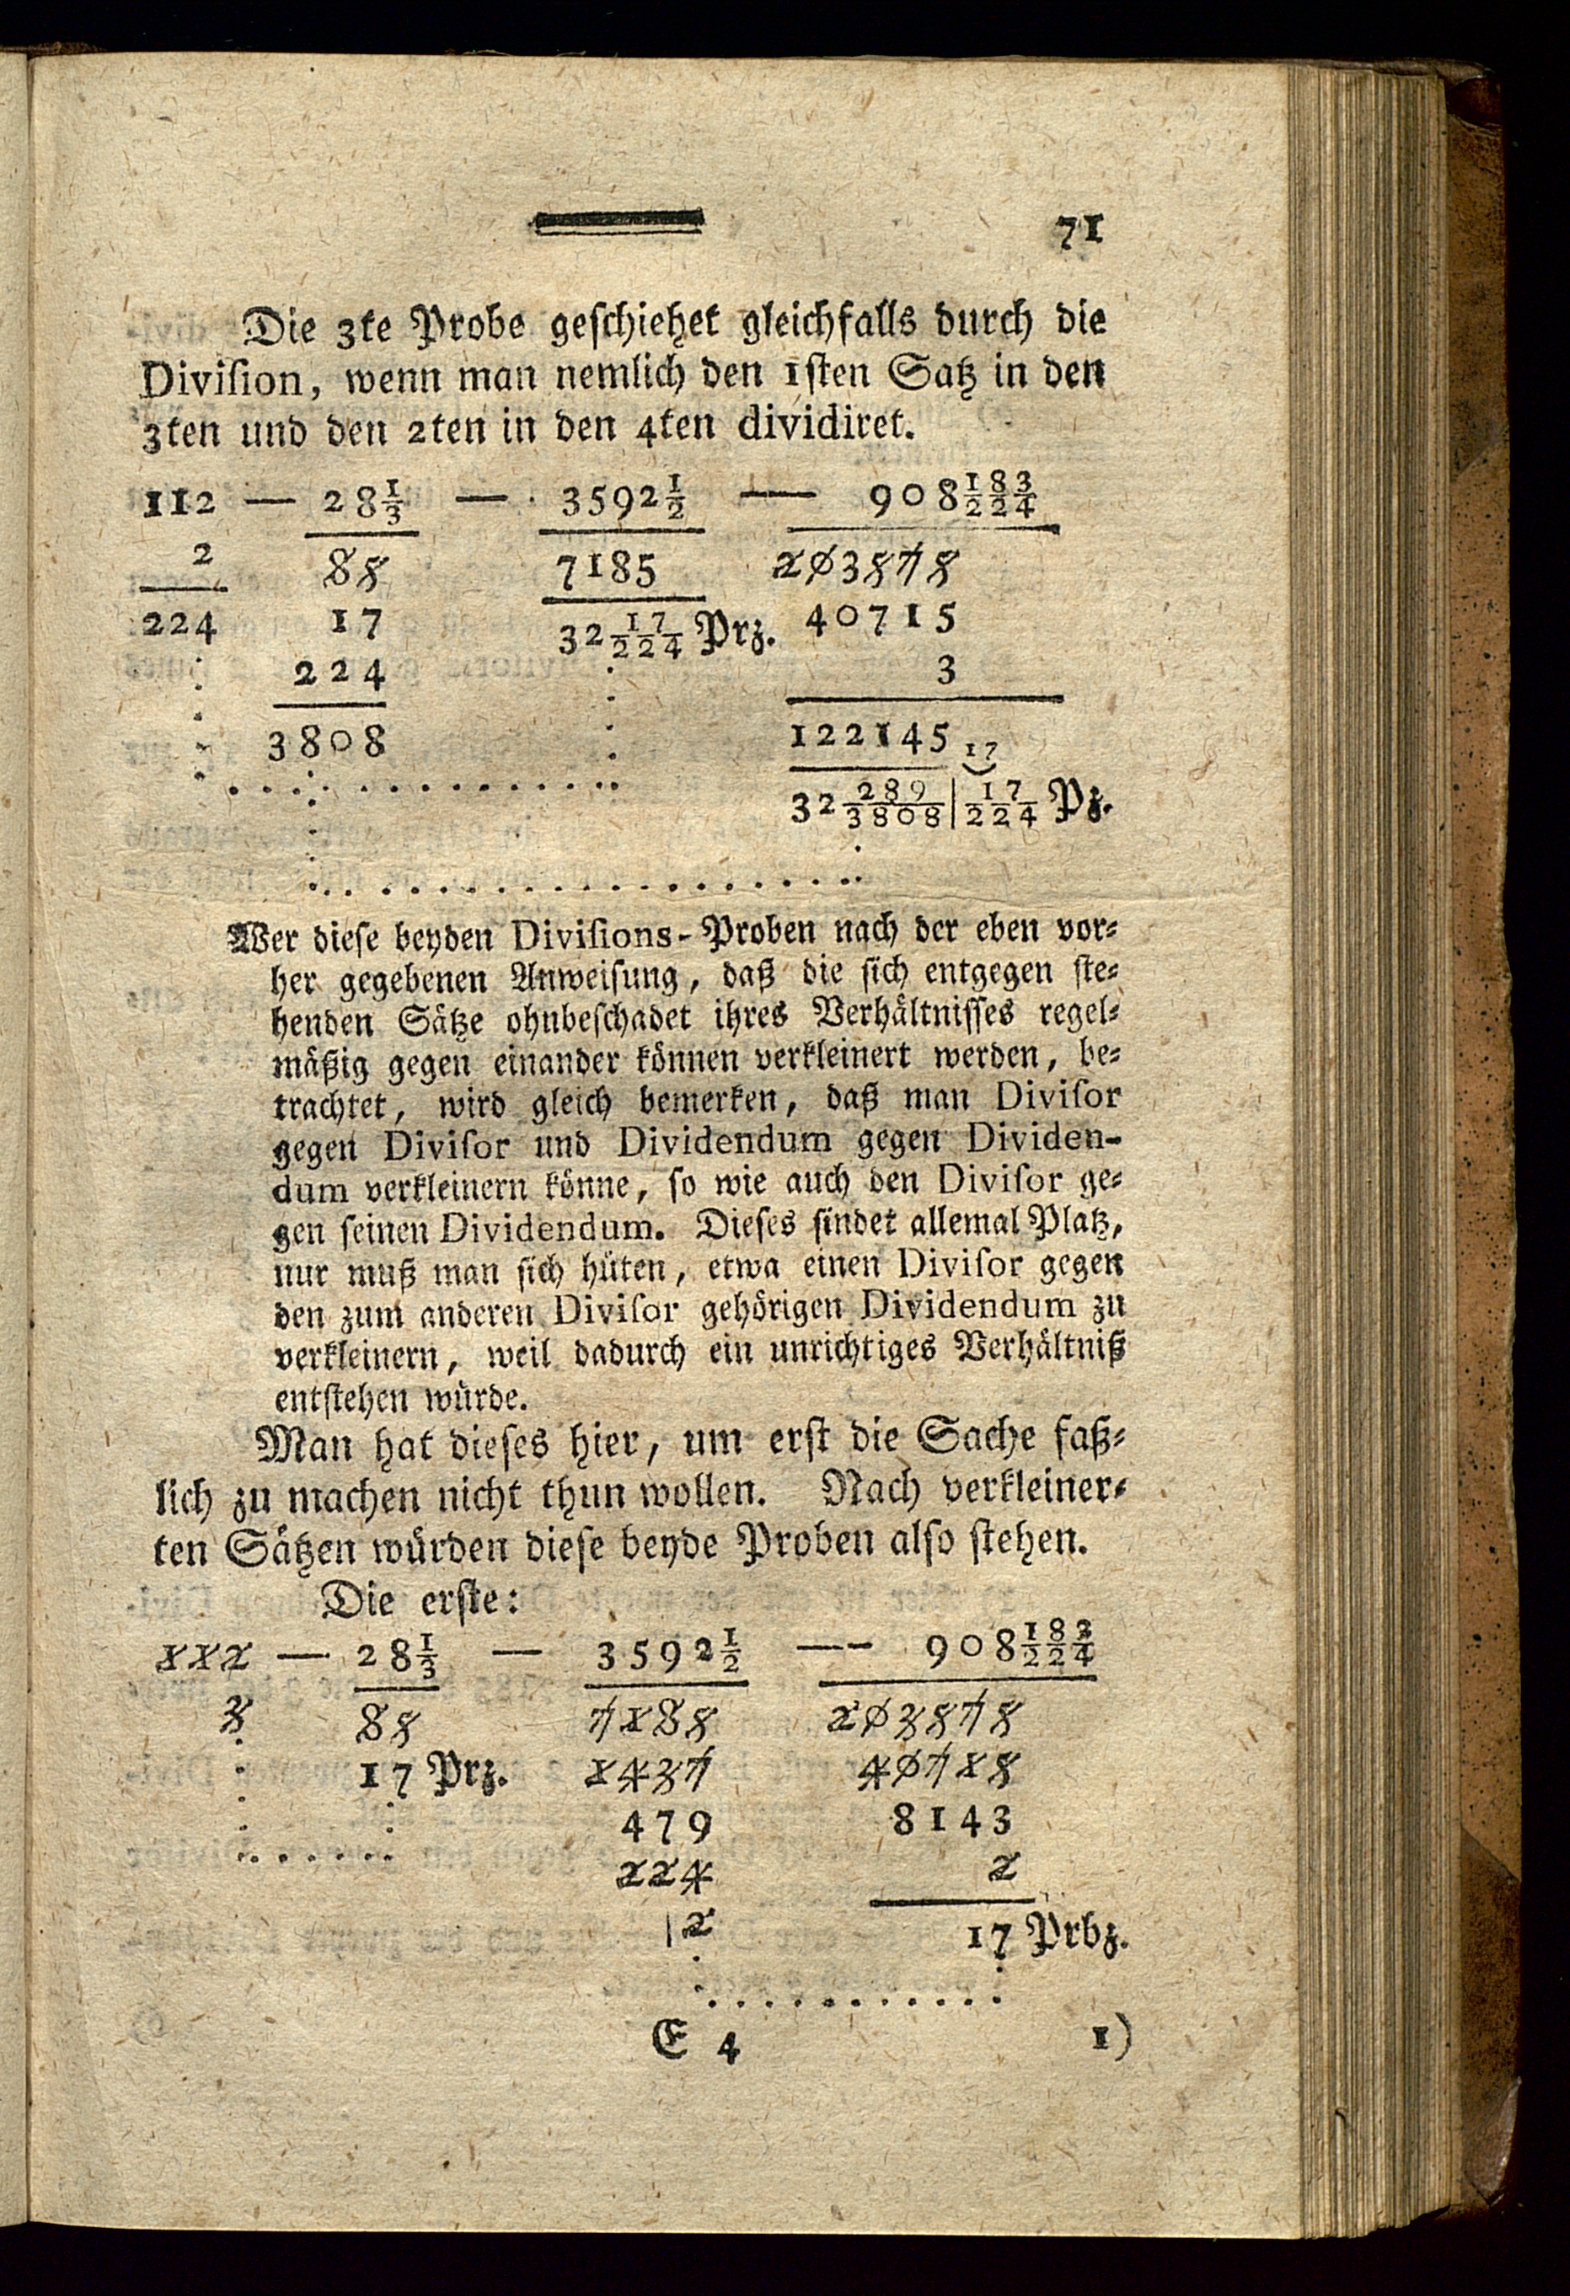 71
Die 3te Probe geschiehet gleichfalls durch die
Division, wenn man nemlich den 1sten Satz in den
3ten und den 2ten in den 4ten dividiret.
112 — 28 1/3 — 3592 1/2 — 908 183/224
2 85 7185 203575
224 17 32 17/224 Prz. 40715
224 3
3808 122145 17
32 289/3808 | 17/224 Pz.
Wer diese beyden Divisions-Proben nach der eben vor-
her gegebenen Anweisung, daß die sich entgegen ste-
henden Sätze ohnbeschadet ihres Verhältnisses regel-
mäßig gegen einander können verkleinert werden, be-
trachtet, wird gleich bemerken, daß man Divisor
gegen Divisor und Dividendum gegen Dividen-
dum verkleinern könne, so wie auch den Divisor ge-
gen seinen Dividendum. Dieses findet allemal Platz,
nur muß man sich hüten, etwa einen Divisor gegen
den zum anderen Divisor gehörigen Dividendum zu
verkleinern, weil dadurch ein unrichtiges Verhältniß
entstehen würde.
Man hat dieses hier, um erst die Sache faß-
lich zu machen nicht thun wollen. Nach verkleiner-
ten Sätzen würden diese beyde Proben also stehen.
Die erste:
112 — 28 1/3 — 3592 1/2 — 908 183/224
3 85 7185 203575
17 Prz. 1437 40715
479 8143
224 2
2 17 Prbz.
E 4 1)